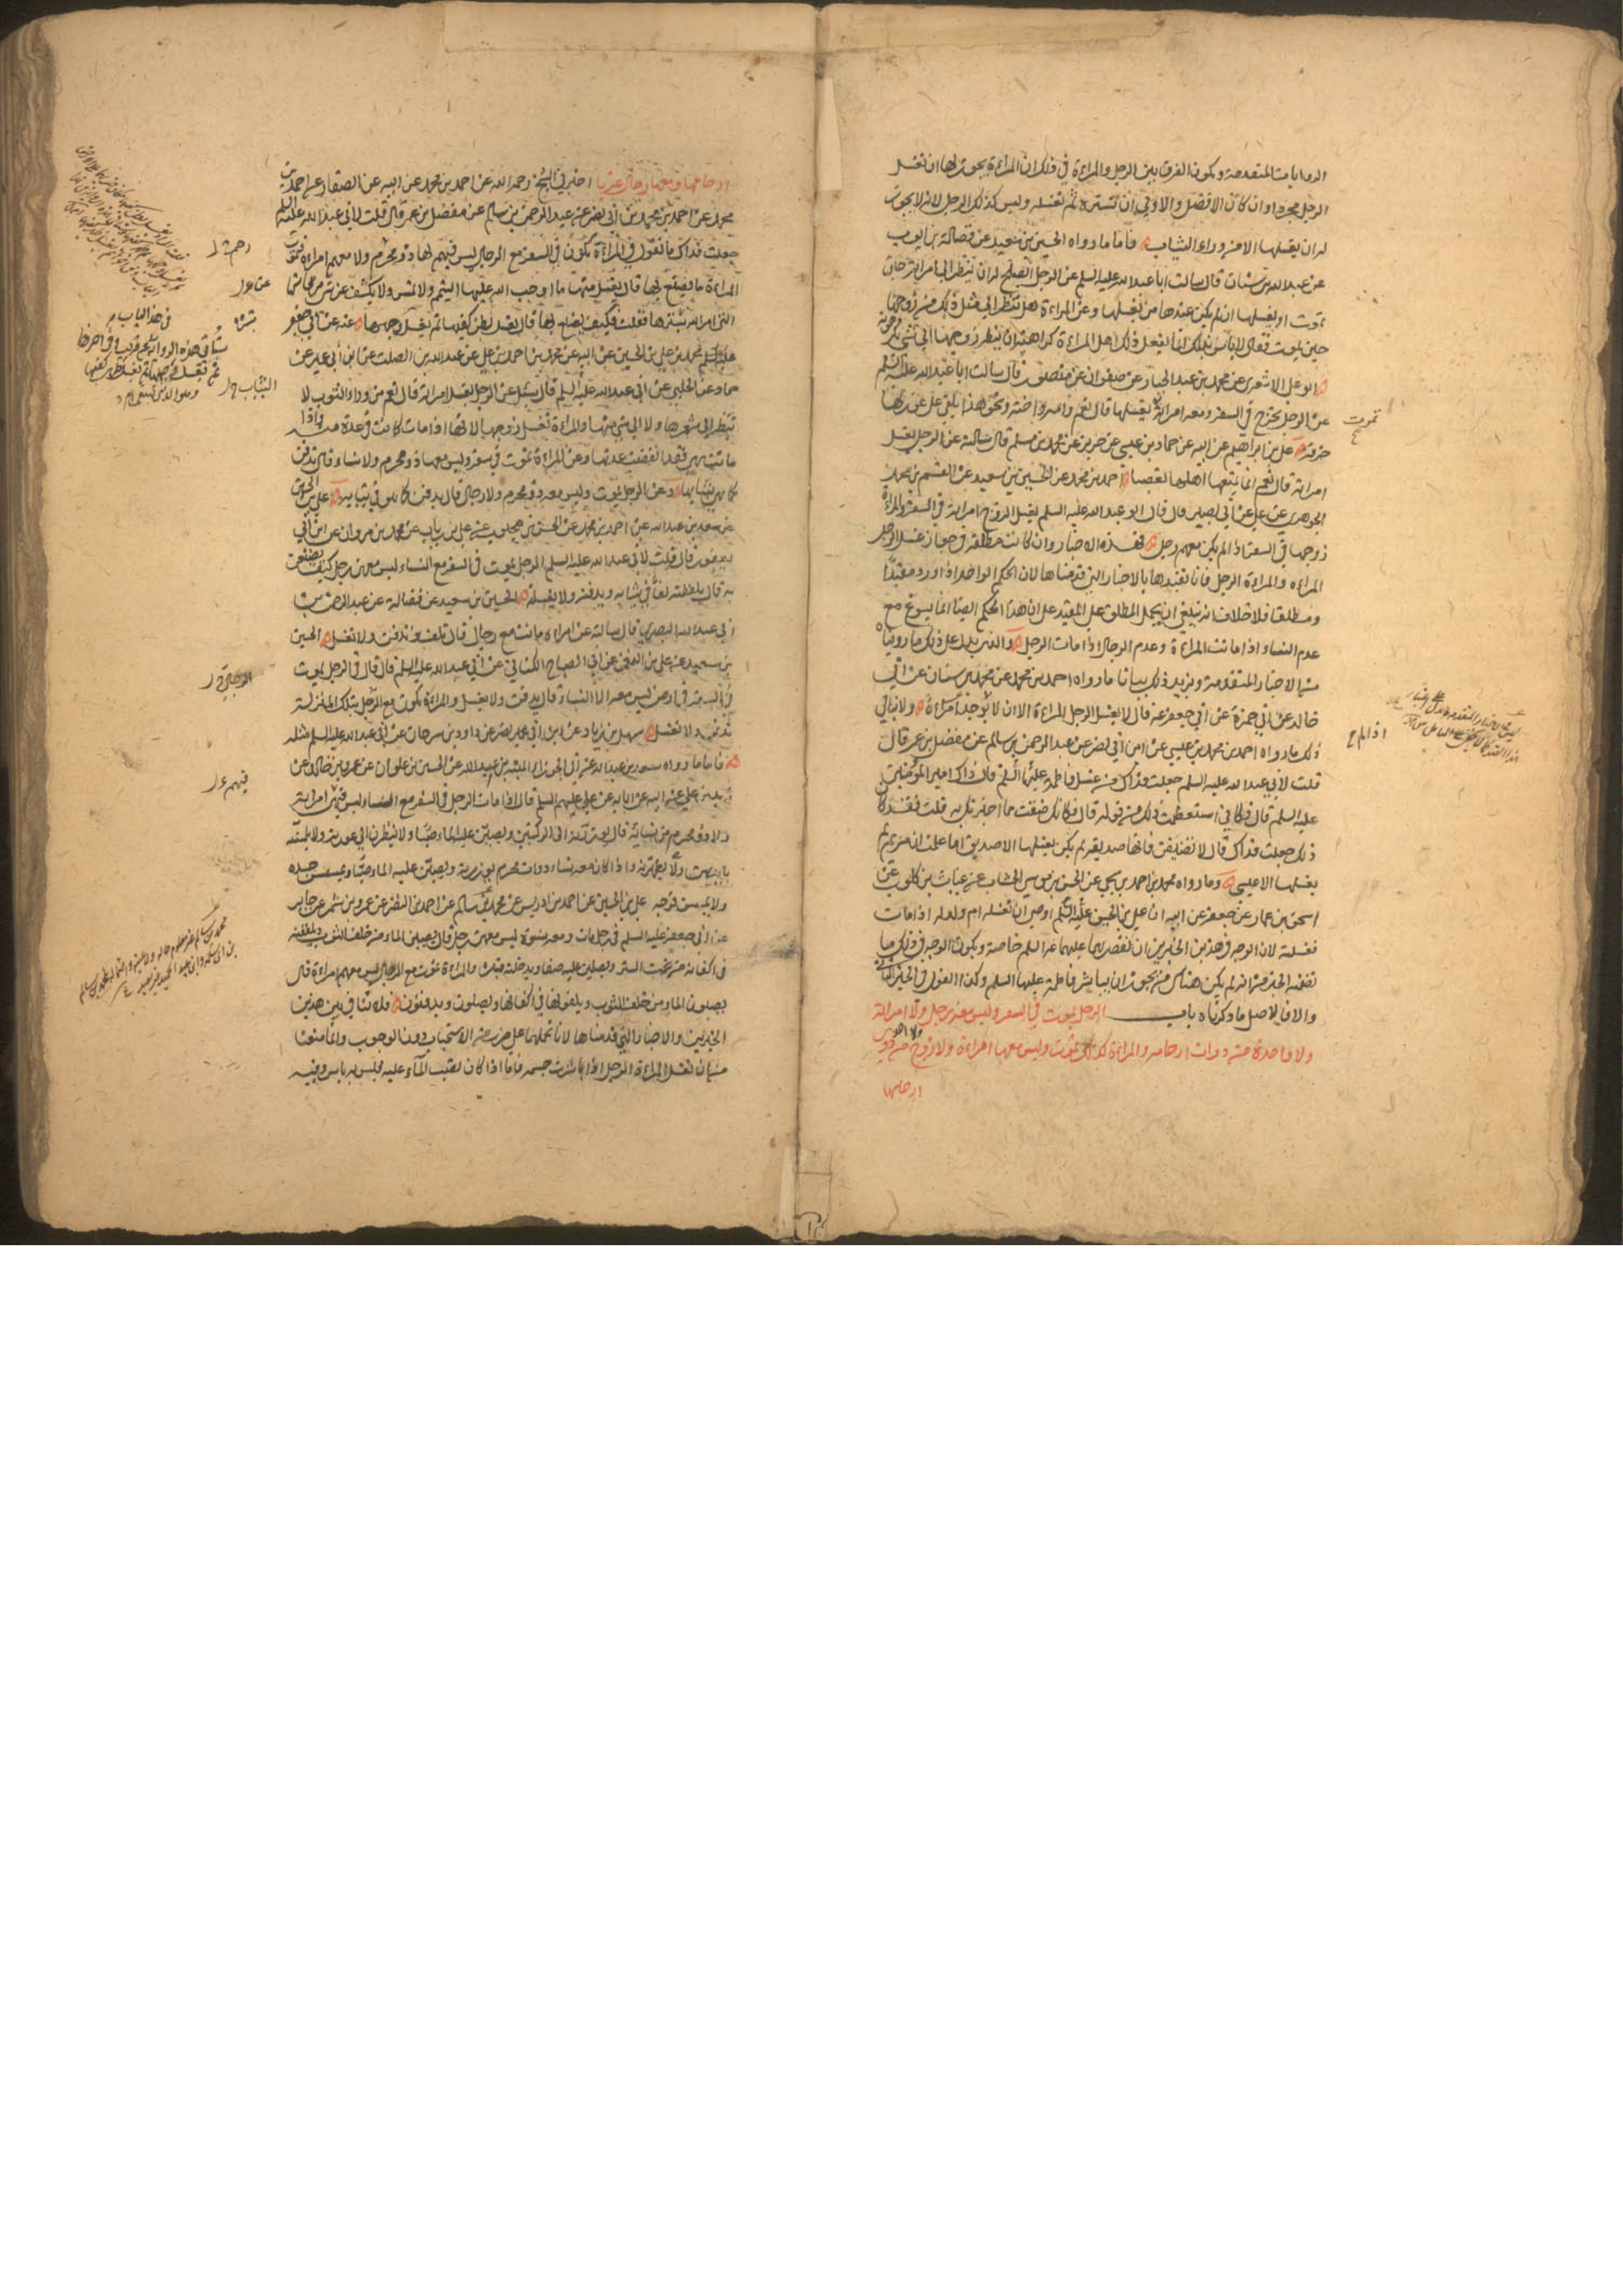 الروايات المتقدمة ويكون الفرق بين الرجل والمراءة في ذلك ان المراءة يجوز لها ان تغسل
الرجل مجردا وان كان الافضل والاولى ان تستره ثم تغسله وليس كذلك الرجل لانه لا يجوز
له ان يغسلها الا من وراء الثياب فاما ما رواه الحسين بن سعيد عن فضالة بن ايوب
عن عبد الله بن سنان قال سالت ابا عبد الله عليه السلم عن الرجل ايصلح له ان ينظر الى امراته حين
تموت او يغسلها ان لم يكن عندها من يغسلها وعن المراءة هل تنظر الى مثل ذلك من زوجها
حين يموت فقال لا باس بذلك انما يفعل ذلك اهل المراءة كراهية ان ينظر زوجها الى شئ يكرهونه
ابو علي الاشعري عن محمد بن عبد الجبار عن صفوان عن منصور قال سالت ابا عبد الله عليه السلم
عن الرجل يخرج في السفر ومعه امراته يغسلها قال نعم وامه واخته ونحو هذا يلقي على عورتها
خرقة علي بن ابراهيم عن ابيه عن حماد بن عيسى عن حريز عن محمد بن مسلم قال سالته عن الرجل يغسل
امراته قال نعم انما يمنعها اهلها تعصبا احمد بن محمد عن الحسين بن سعيد عن القسم بن محمد
الجوهري عن علي عن ابي بصير قال قال ابو عبد الله عليه السلم يغسل الزوج امراته في السفر والمراة
زوجها في السفر اذا لم يكن معهم رجل فهذه الاخبار وان كانت مطلقة في جواز غسل الرجل
المراءه والمراءة الرجل فانا نقيدها بالاخبار التي قدمناها لان الحكم الواحد اذا ورد مقيدا
ومطلقا فلا خلاف انه ينبغي ان يحمل المطلق على المقيد على ان هذا الحكم ايضا انما يسوغ مع
عدم النساء اذا ماتت المراءة وعدم الرجال اذا مات الرجل والذي يدل على ذلك ما رويناه
من الاخبار المتقدمة ويزيد ذلك بيانا ما رواه احمد بن محمد عن محمد بن سنان عن ابي
خالد عن ابي حمزة عن ابي جعفر عه قال لا يغسل الرجل المراءة الا ان لا توجد امراءة ولا ينافي
ذلك ما رواه احمد بن محمد بن عيسى عن ابن ابي نصر عن عبد الرحمن بن سالم عن مفضل بن عمر قال
قلت لابي عبد الله عليه السلم جعلت فداك من غسل فاطمة عليها السلم قال ذاك امير المؤمنين
عليه السلم قال فكاني استعظمت ذلك من قوله قال فكانك ضقت مما اخبرتك به قلت فقد كان
ذلك جعلت فداك قال لا تضيقن فانها صديقة لم يكن يغسلها الا صديق اما علمت ان مريم لم
يغسلها الا عيسى وما رواه محمد بن احمد بن يحيى عن الحسن بن موسى الخشاب عن غياث بن كلوب عن
اسحق بن عمار عن جعفر عن ابيه ان علي بن الحسين عليه السلم اوصى ان تغسله ام ولد له اذا مات
فغسلته لان الوجه في هذين الخبرين ان نقصرهما عليهما عليهما السلم خاصة ويكون الوجه في ذلك ما
تضمنه الخبر من انه لم يكن هناك من يجوز ان يباشر فاطمة عليها السلم وكذا القول في الخبر الثاني
والا فالاصل ما ذكرناه باب الرجل يموت في السفر وليس معه رجل ولا امراته
ولا واحدة من ذوات ارحامه والمراءة كذلك تموت وليس معها امراءة ولا زوج ولا احد من ذوي
ارحامها
تموت
اذا لم
ارحامها ومعها رجال غرباء اخبرني الشيخ رحمه الله عن احمد بن محمد عن ابيه عن الصفار عن احمد بن
محمد عن احمد بن محمد بن ابي نصر عن عبد الرحمن بن سالم عن مفضل بن عمر قال قلت لابي عبد الله عليه السلم
جعلت فداك ما تقول في المراءة تكون في السفر مع الرجال ليس فيهم لها ذو محرم ولا معهم امراءة فتموت
المراءة ما يصنع بها قال يغسل منها ما اوجب الله عليها التيمم ولا تمس ولا يكشف عن شئ من محاسنها
التي امر الله بسترها فقلت فكيف يصنع بها قال يغسل بطن كفيها ثم يغسل وجهها
محمد بن علي بن الحسين عن ابيه عن محمد بن احمد بن علي عن عبد الله بن الصلت عن ابن ابي عمير عن
حماد عن الحلبي عن ابي عبد الله عليه السلم قال سئل عن الرجل يغسل امراته قال نعم من وراء الثوب لا
ينظر الى شعرها ولا الى شئ منها والمراءة تغسل زوجها لانها اذا مات كانت في عدة منه واذا
ماتت هي فقد انقضت عدتها وعن المراءة تموت في سفر وليس معها ذو محرم ولا نساء قال تدفن
كما هي بثيابها وعن الرجل يموت وليس معه ذو محرم ولا رجال قال يدفن كما هو في ثيابه علي بن الحسين
عن سعد بن عبد الله عن احمد بن محمد عن الحسن بن محبوب عن علي بن رياب عن محمد بن مروان عن ابن ابي
يعفور قال قلت لابي عبد الله عليه السلم الرجل يموت في السفر مع النساء ليس معهن رجل كيف يصنعن
به قال يلففنه لفا في ثيابه ويدفنه ولا يغسلنه الحسين بن سعيد عن فضالة عن عبد الرحمن بن
ابي عبد الله البصري قال سالته عن امراءة ماتت مع رجال قال تلف وتدفن ولا تغسل الحسين
بن سعيد عن علي بن النعمن عن ابي الصباح الكناني عن ابي عبد الله عليه السلم قال قال في الرجل يموت
في السفر في ارض ليس معه الا النساء قال يدفن ولا يغسل والمراءة تكون مع الرجال بتلك المنزلة
تدفن ولا تغسل سهل بن زياد عن ابن ابي نصر عن داود بن سرحان عن ابي عبد الله عليه السلم مثله
فاما ما رواه سعد بن عبد الله عن ابي الجوزاء المنبه بن عبد الله عن الحسين بن علوان عن عمرو بن خالد عن
زيد بن علي عن ابيه عن ابايه عن علي عليهم السلم قال اذا مات الرجل في السفر مع النساء ليس فيهن امراته
ولا ذو محرم من نسائه قال يوزرنه الى الركبتين ويصببن عليه الماء صبا ولا ينظرن الى عورته ولا يلمسنه
بايديهن ولا يطهرنه واذا كان معه نساء ذوات محرم يوزرنه ويصببن عليه الماء صبا ويمسسن جسده
ولا يمسسن فرجه علي بن الحسين عن احمد بن ادريس عن محمد بن سالم عن احمد بن النضر عن عمرو بن شمر عن جابر
عن ابي جعفر عليه السلم في رجل مات ومعه نسوة ليس معهن رجل قال يصببن الماء من خلف الثوب ويلففنه
في اكفانه من تحت الستر ويصلين عليه صفا ويدخلنه قبره والمراءة تموت مع الرجال ليس معهم امراءة قال
يصبون الماء من خلف الثوب ويلفونها في اكفانها ويصلون ويدفنون فلا تنافي بين هذين
الخبرين والاخبار التي قدمناها لانا نحملها على ضرب من الاستحباب دون الوجوب وانما منعنا
من ان تغسل المراءة الرجل اذا باشرت جسمه فاما اذا كان تصب الماء عليه فليس به باس وفيه
في هذا الباب
فيهم